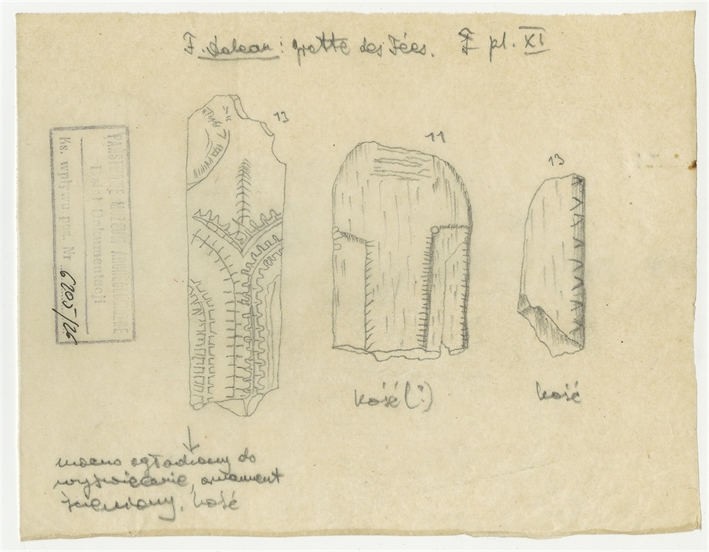 F. Daleau : grotte des Fées. pl. XI
13
11
13
PAŃSTWOWE MUZEUM ARCHEOLOGICZNE
Dział Dokumentacji
Ks. wpływu poz. Nr 6205/26
kość (?)
kość
mocno wygładzony do
wyświecenia, ornament
kość